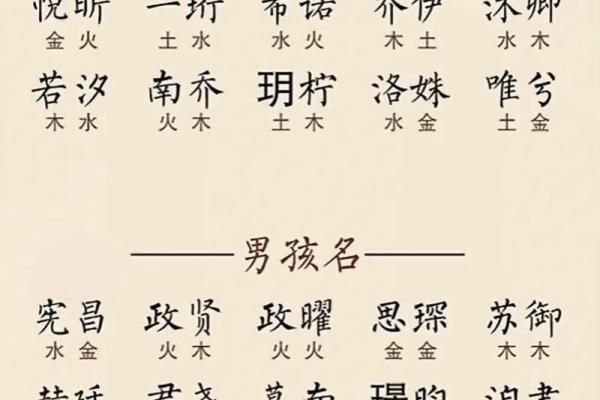 悦昕 一珩 希诺 乔伊 沐卿
金火 土水 水火 木土 水木
若汐 南乔 玥柠 洛姝 唯兮
木水 火木 土木 水金 土金
男孩名
宪昌 政贤 政曜 思琛 苏御
水金 火木 火火 金金 木木
君尧